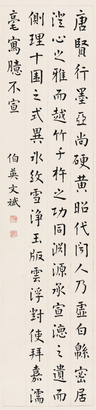 唐賢行墨亞尚硬黃昭代閩人乃虛白緜密居
澄心之雅而越竹千杵之功同淵源承宣德之遺而
側理十國之式異氷紋雪淨玉版雲浮對使拜嘉濡
毫寫臆不宣
伯英文斌